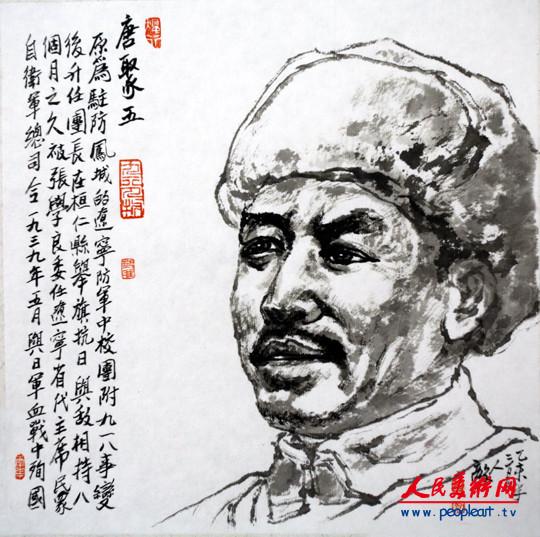 唐聚五
原為駐防鳳城的遼寧防軍中校團附九一八事變
後升任團長在桓仁縣舉旗抗日與敵相持八
個月之久被張學良委任遼寧省代主席民衆
自衛軍總司令一九三九年五月與日軍血戰中殉國
乙未年
人民美術网
www.peopleart.tv